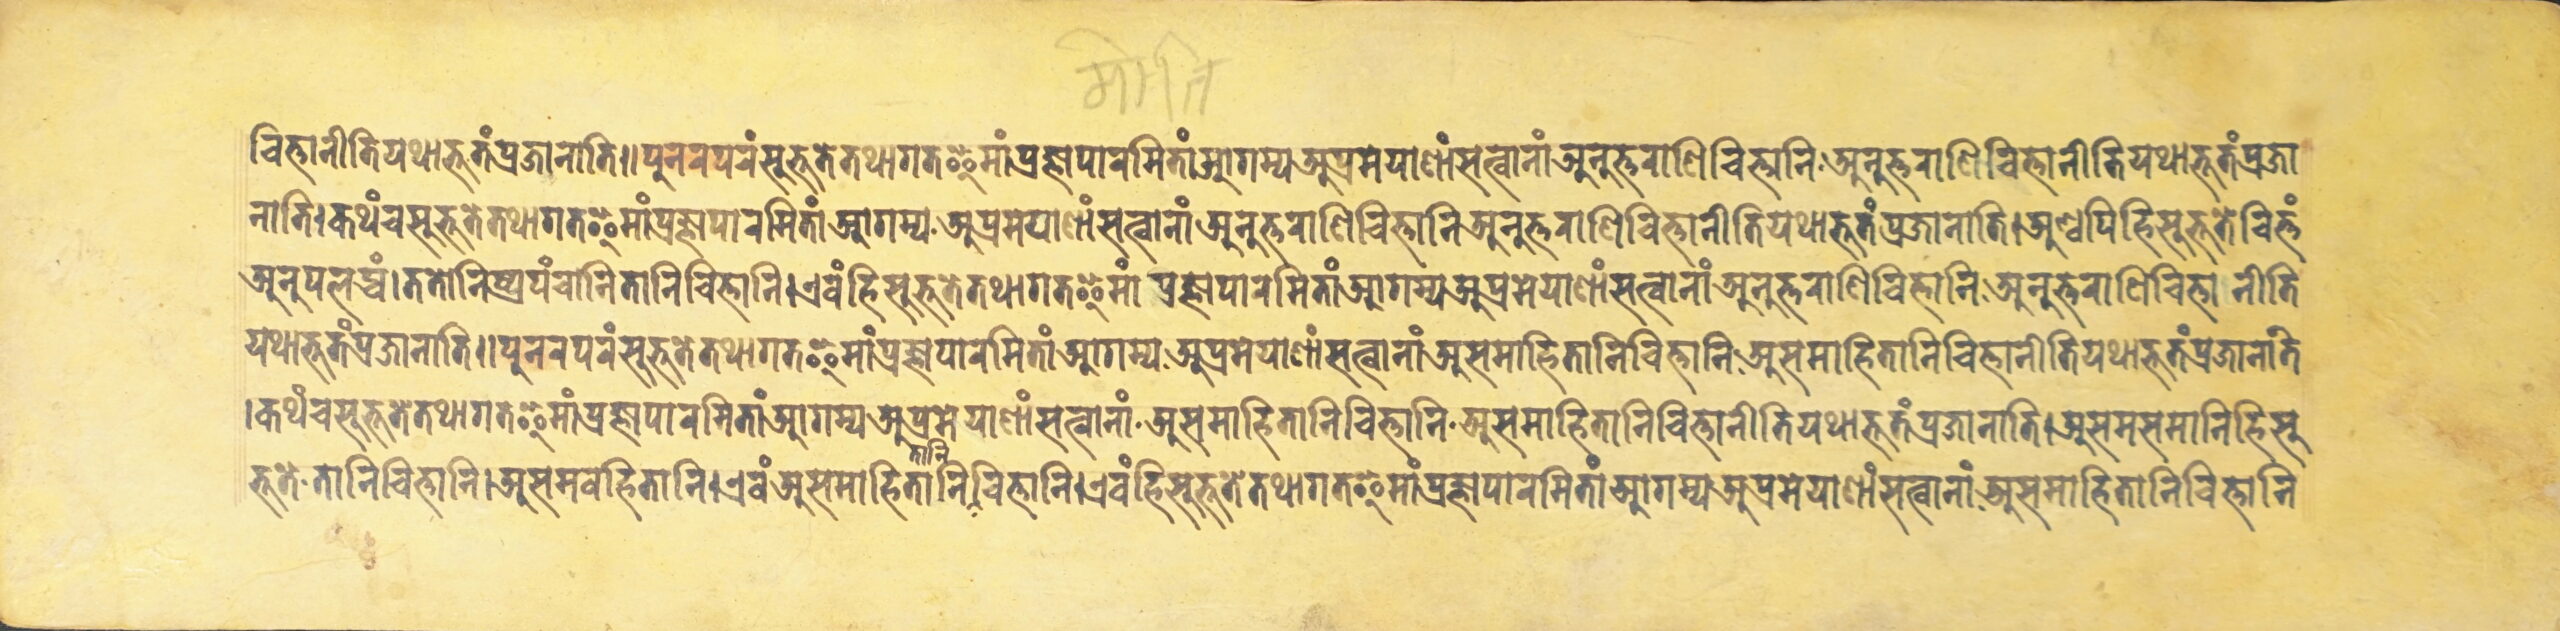 मोति
चित्तानीतियथाभूतंप्रजानाति॥पुनरपरंसुभूतेतथागतइमांप्रज्ञापारमितांआगम्यअप्रमेयाणांसत्वानांअनुत्तराणिचित्तानि·अनुत्तराणिचित्तानीतियथाभूतंप्रजा
नाति।कथंचसुभूतेतथागतइमांप्रज्ञापारमितांआगम्य·अप्रमेयाणांसत्वानांअनुत्तराणिचित्तानिअनुत्तराणिचित्तानीतियथाभूतंप्रजानाति।अण्वपिहिसुभूतेचित्तं
अनुपलब्धं।ततोनिष्प्रपंचानितानिचित्तानि।एवंहिसुभूतेतथागतइमां प्रज्ञापारमितांआगम्यअप्रमेयाणांसत्वानांअनुत्तराणिचित्तानि·अनुत्तराणिचित्ता नीति
यथाभूतंप्रजानाति॥पुनरपरंसुभूतेतथागतइमांप्रज्ञापारमितांआगम्य·अप्रमेयाणांसत्वानांअसमाहितानिचित्तानि·असमाहितानिचित्तानीतियथाभूतंप्रजानाति
।कथंचसुभूतेतथागतइमांप्रज्ञापारमितांआगम्यअप्रमेयाणांसत्वानां·असमाहितानिचित्तानि·असमाहितानिचित्तानीतियथाभूतंप्रजानाति।असमसमानिहिसु
तानि
भूते·तानिचित्तानि।असमवहितानि।एवंअसमाहितानिचित्तानि।एवंहिसुभूतेतथागतइमांप्रज्ञापारमितांआगम्यअप्रमेयाणांसत्वानां·असमाहितानिचित्तानि